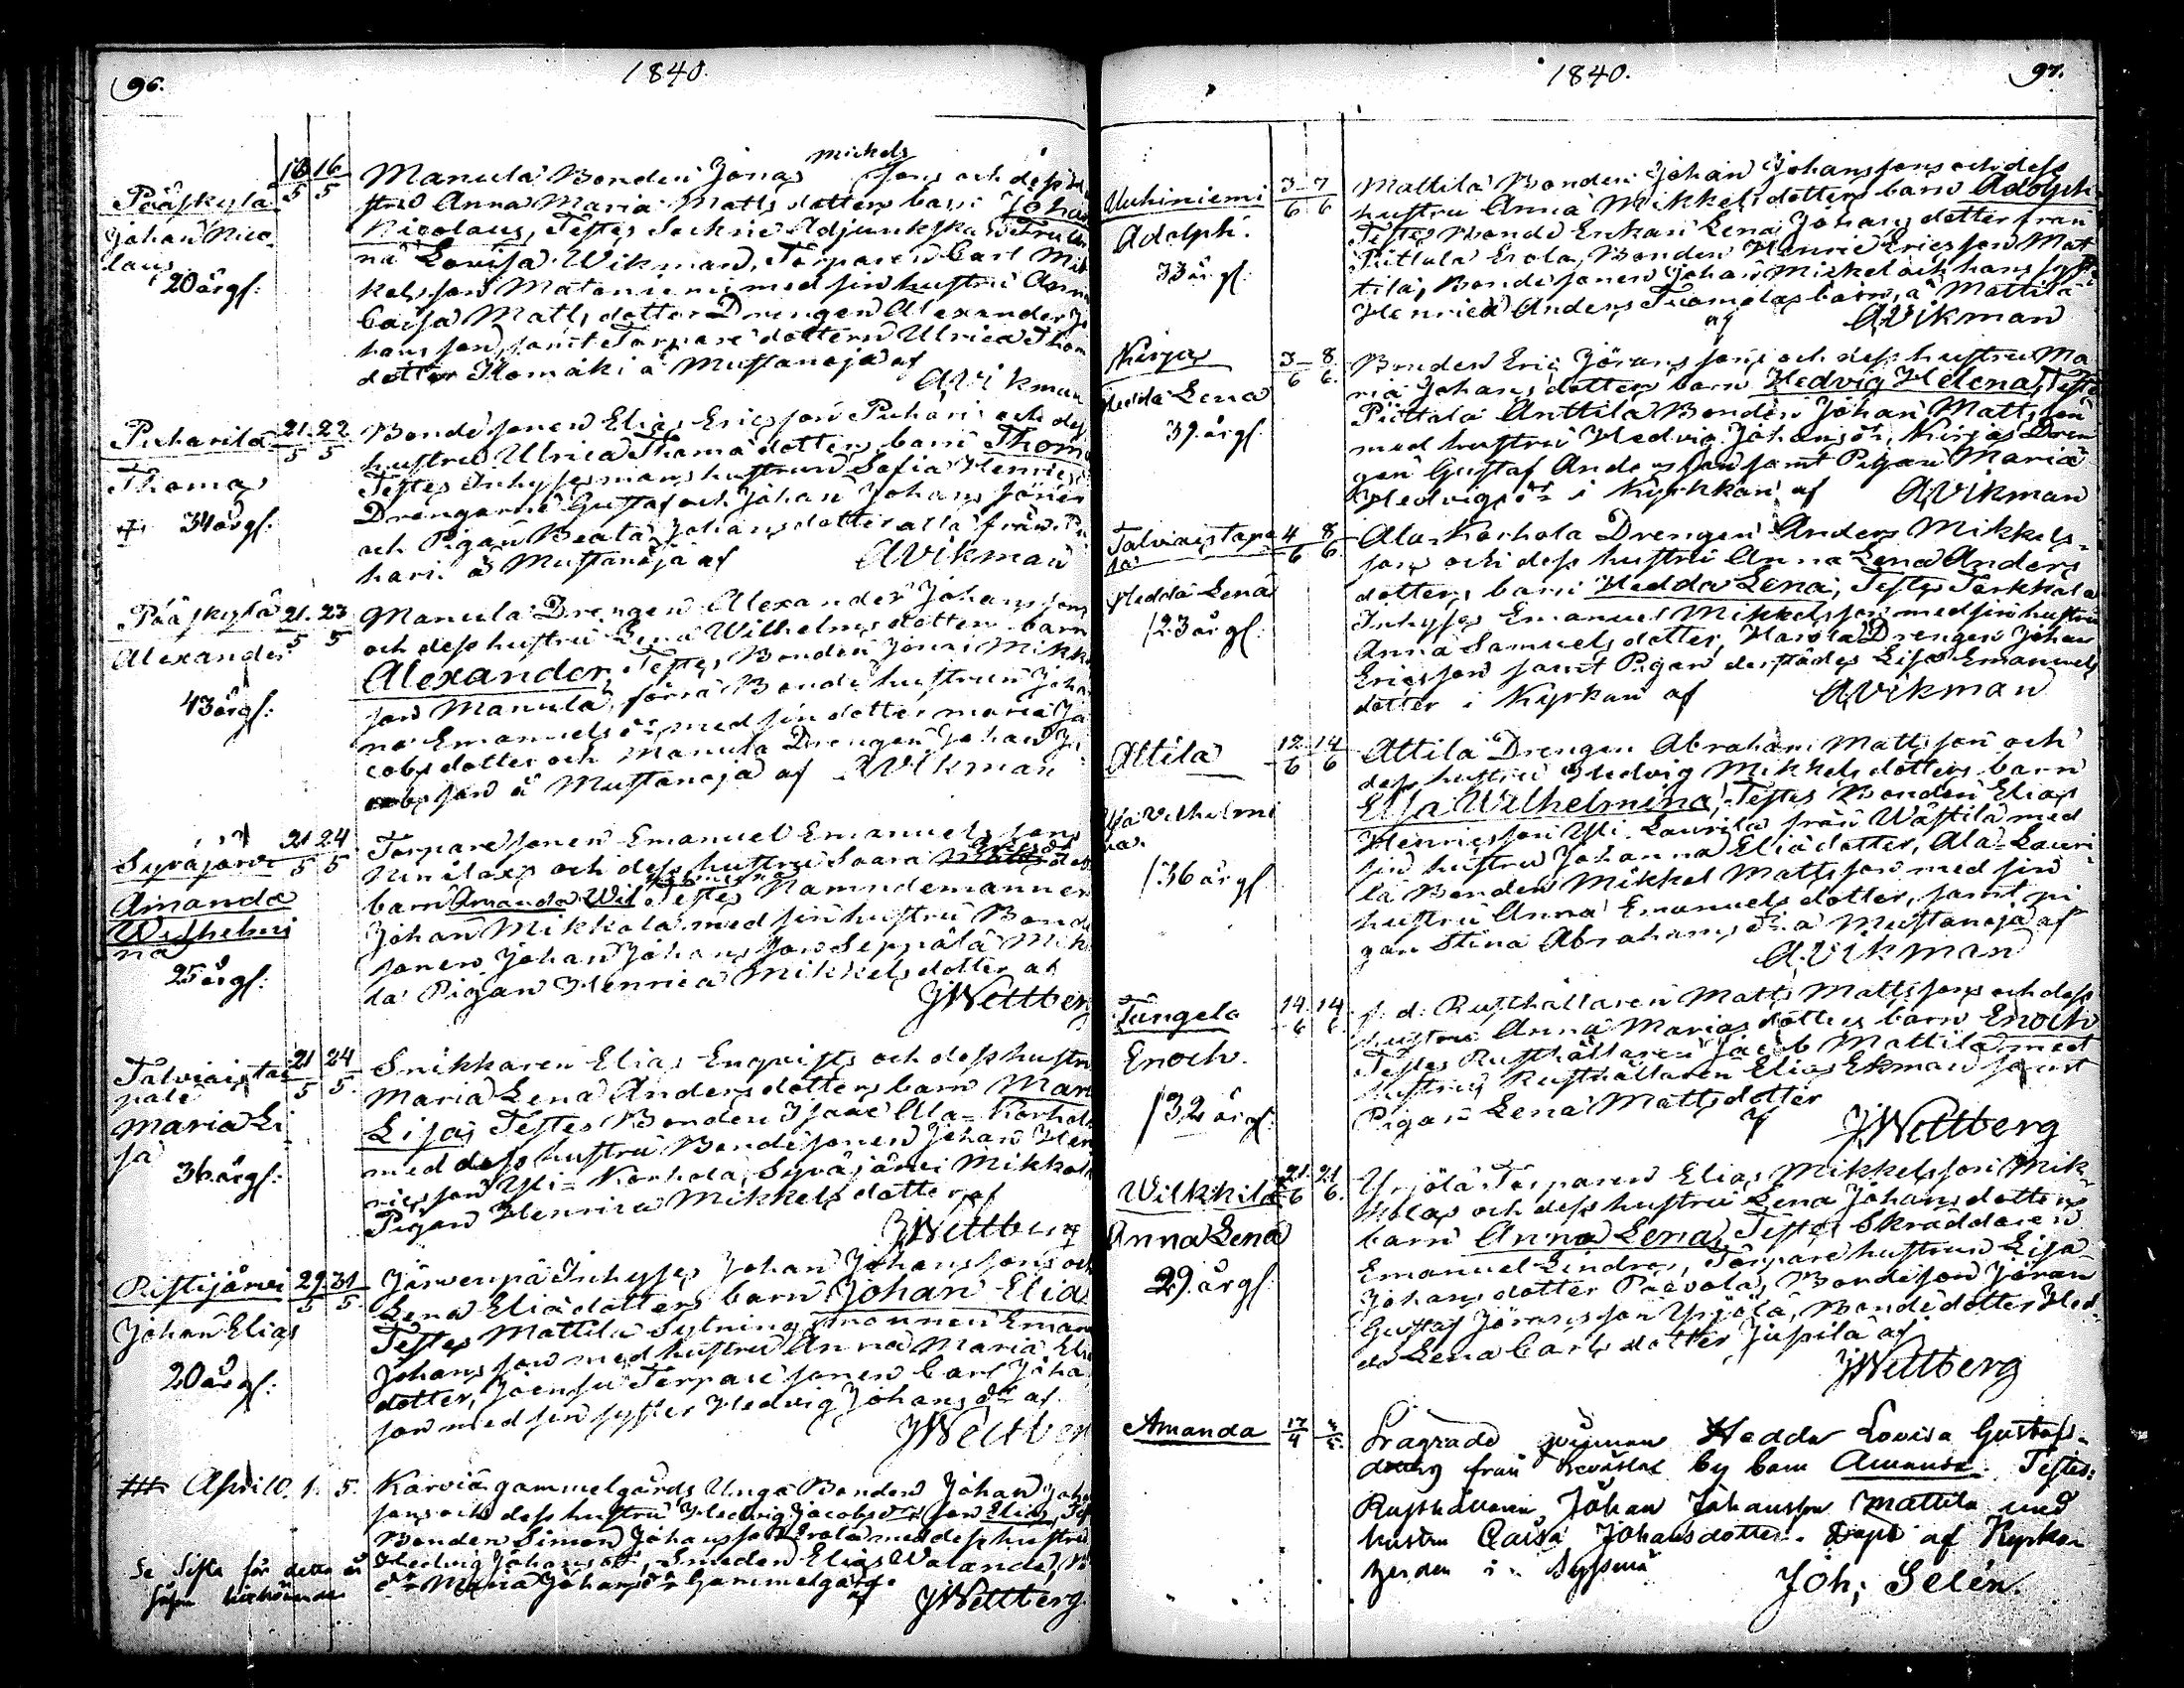 96.
1840.
Pääskylä
Johan Nico
laus
20 årgl:
16 16
5 5
Manula Bonden Jonas Mickels sons och dess hu
stru Anna Maria Matts dotters barn Johan
Nicolaus, Testes Sockne Adjunkskan Fru
na Lovisa Wikman, Torparen Carl Mik
kelsson Mataniemi med sin hustru Anna
Caisa Matts dotter Drengen Alexander Jo
hans son, samt Torpare dottern Ulrica Thom
dotter Komäki å Mustanoja af
AWikman
Puharila
Thomas
34 årgl:
21. 22
5 5
Bonde sonen Elias Ericsson Puhari och dess
hustru Ulrica Thoma dotters barn Thom
Testes Inhyses mans hustrun Sofia Henrics
Drengarne Gustaf och Johan Johans söner
och Pigan Beata Johans dotter alla från Pu
hari å Mustanoja af AWikman
Pääskylä
Alexander
43 årgl:
21. 23
5 5
Manula Drengen Alexander Johans sons
och dess hustru Lena Wilhelms dotters barn
Alexander, Testes Bonden Jonas Mikkel
son Manula, förra Bonde hustrun Joha
na Emanuels dr med sin dotter Maria Ja
cobs dotter och Manula Drengen Johan Ja
cobs son å Mustanoja af AWikman
Syväjärvi
Amanda
Wilhelmi
na
25 årgl:
21 24
5 5
Torpare sonen Emanuel Emanuels sons
och dess hustru Saara Erics dotters
barn Amanda Wilhelmina Testes Namndemannen
Johan Mikkola med sin hustru Bonde
sonen Johan Johans son Seppälä Mik
la Pigan Henrica Mikkels dotter af
JWettberg
Talviaistai
pale
Maria Li
sa
36 årgl:
21 24
5 5.
Snikkaren Elias Enqvists och dess hustru
Maria Lena Anders dotters barn Maria
Lisa, Testes Bonden Isaac Ala-Korhola
med dess hustru Bonde sonen Johan Hen
rics son Yli-Korhola, Syväjärvi Mikkola
Pigan Henrica Mikkels dotter af
JWettberg
Ristijärvi
Johan Elias
20 årgl:
29. 31
5 5.
Järvenpä Inhyses Johan Johans sons och
Lena Elia dotters barn Johan Elia
Testes Mattila Sytnings mannen Eman
Johans son med hustru Anna Maria Elia
dotter, Joensu Torpare sonen Carl Joha
son med sin syster Hedvig Johans dr af
JWettberg
April. 1. 5.
Karvia gammelgårds Unga Bonden Johan Joha
sons och dess hustru Hedvig Jacobs dr son Elias, Tes
Bonden Simon Johansson Erola med dess hustru
Hedvig Johans dr, Smeden Elias Walander,
dr Maria Johans dr Gammelgård
af JWettberg.
Se Sista för detta år
1840.
97.
Uuhiniemi
Adolph.
33 årgl.
3 7
6 6
Mattila Bonden Johan Johanssons och dess
hustru Anna Mikkels dotters barn Adolph
Testes Bonde Enkan Lena Johans dotter från
Pittala Erola, Bonden Henric Ericsson Mat
tila, Bonde sonen Johan Mickel och hans syster
Henrica Anders Tuomolas barn, å Mattila
af AWikman
Kirjas
Hedda Lena
39. årgl.
3 8
6 6.
Bonden Eric Jörans sons och dess hustru Ma
ria Johans dotters barn Hedvig Helena, Testes
Pittala Anttila Bonden Johan Matts son
med hustru Hedvig Johans dr, Kirjas Dren
gen Gustaf Anders son samt Pigan Maria
Hedvigs dr i Kyrkkan af AWikman
Talviaistapa
la
Hedda Lena
23 årgl:
4 8
6 6.
Ala-Korhola Drengen Anders Mikkels-
sons och dess hustru Anna Lena Anders
dotters barn Hedda Lena, Testes Torkkola
Inhyses Emanuel Mikkels son med sin hustru
Anna Samuels dotter, Harola Drengen Johan
Erics son samt Pigan derstädes Lisa Emanuels
dotter i Kyrkan af AWikman
Attila
Wilhelmi
na
36 årgl
12 14
6 6
Attila Drengen Abraham Matts son och
dess hustru Hedvig Mikkels dotters barn
Elsa Wilhelmina, Testes Bonden Elias
Henricsson Yli Laurila från Wästilä med
sin hustru Johanna Elia dotter, Ala-Lauri
la Bonden Mikkel Matts son med sin
hustru Anna Emanuels dotter, samt pi
gan Stina Abrahams dr å Mustanoja af
AWikman
Tungela
Enoch.
32 årgl:
14. 14
6 6.
f. d. Rusthållaren Matts Matts sons och dess
hustru Anna Marias dotters barn Enoch
Testes Rusthållaren Jacob Mattila med
hustru, Rusthållaren Elias Ekman samt
Pigan Lena Matts dotter
af JWettberg
Wilkkilä
Anna Lena
29 årgl:
21. 21
6 6.
Yrjölä Torparen Elias Mikkels son Mik
kolas och dess hustru Lena Johans dotters
barn Anna Lena, Testes Skräddaren
Emanuel Lindros, Torpare hustrun Lisa
Johans dotter Päivola, Bonde son Jöran
Gustaf Jörans son Yrjölä, Bonde dotter Hed
da Lena Carls dotter Jussila af
JWettberg
Amanda
17
4
Hedda Lovisa Gustafs-
från by barn Amanda. Testes:
Rusthållaren Johan Johansson Mattila med
hustru Caisa Johansdotter. Döpt af Kyrko
herden i Sysmä
Joh; Selén.